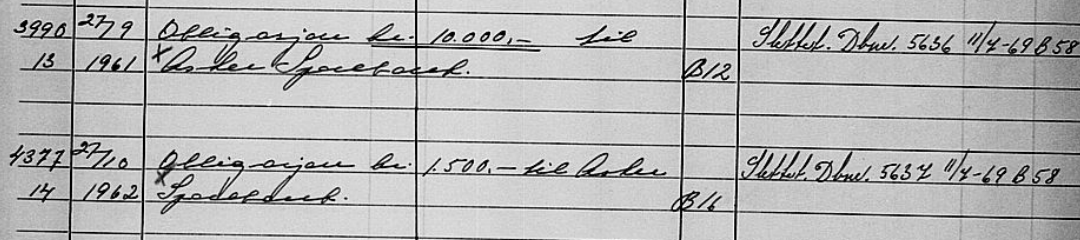 3990 27/9 Obligasjon kr. 10.000,- til Slettet. Dbnr. 5636 11/7-69 B 58
13 1961 x Asker Sparebank. B12
4377 27/10 Obligasjon kr. 1.500.- til Asker Slettet. Dbnr. 5637 11/7-69 B 58
14 1962 x Sparebank. B16